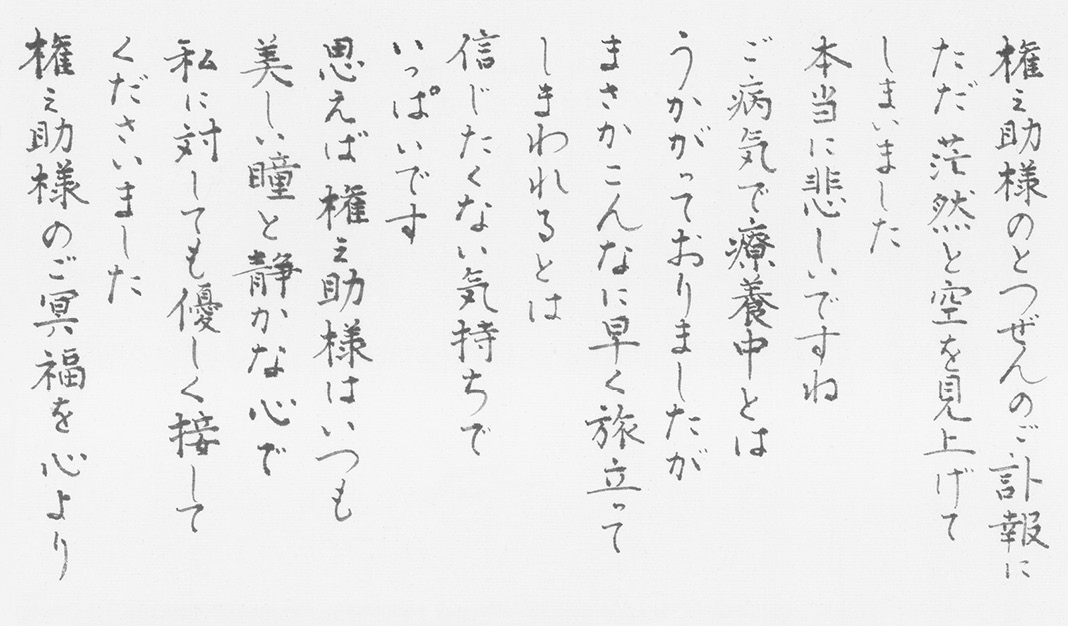 権之助様のとつぜんのご訃報に
ただ茫然と空を見上げて
しまいました
本当に悲しいですね
ご病気で療養中とは
うかがっておりましたが
まさかこんなに早く旅立って
しまわれるとは
信じたくない気持ちで
いっぱいです
思えば権之助様はいつも
美しい瞳と静かな心で
私に対しても優しく接して
くださいました
権之助様のご冥福を心より